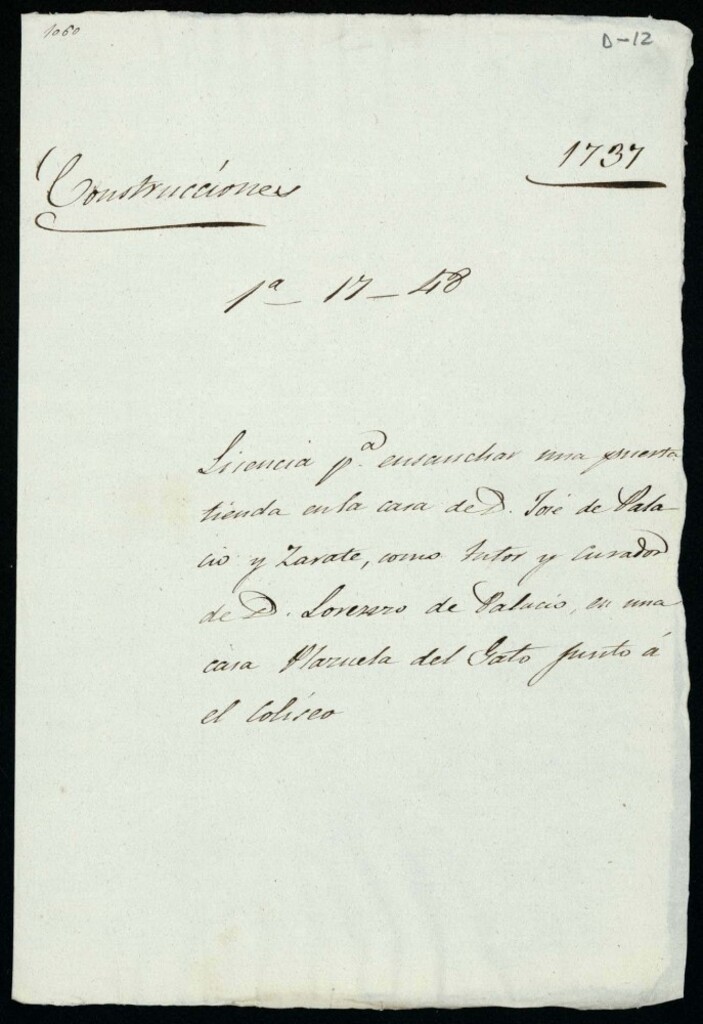 1060
D-12
1737
Construcciones
1ª - 17 - 48
Licencia pª. ensanchar una puerta
tienda en la casa de D. José de Pala-
cio y Zarate, como tutor y curador
de D. Lorenzo de Palacio, en una
casa Plazuela del Gato junto á
el Coliseo